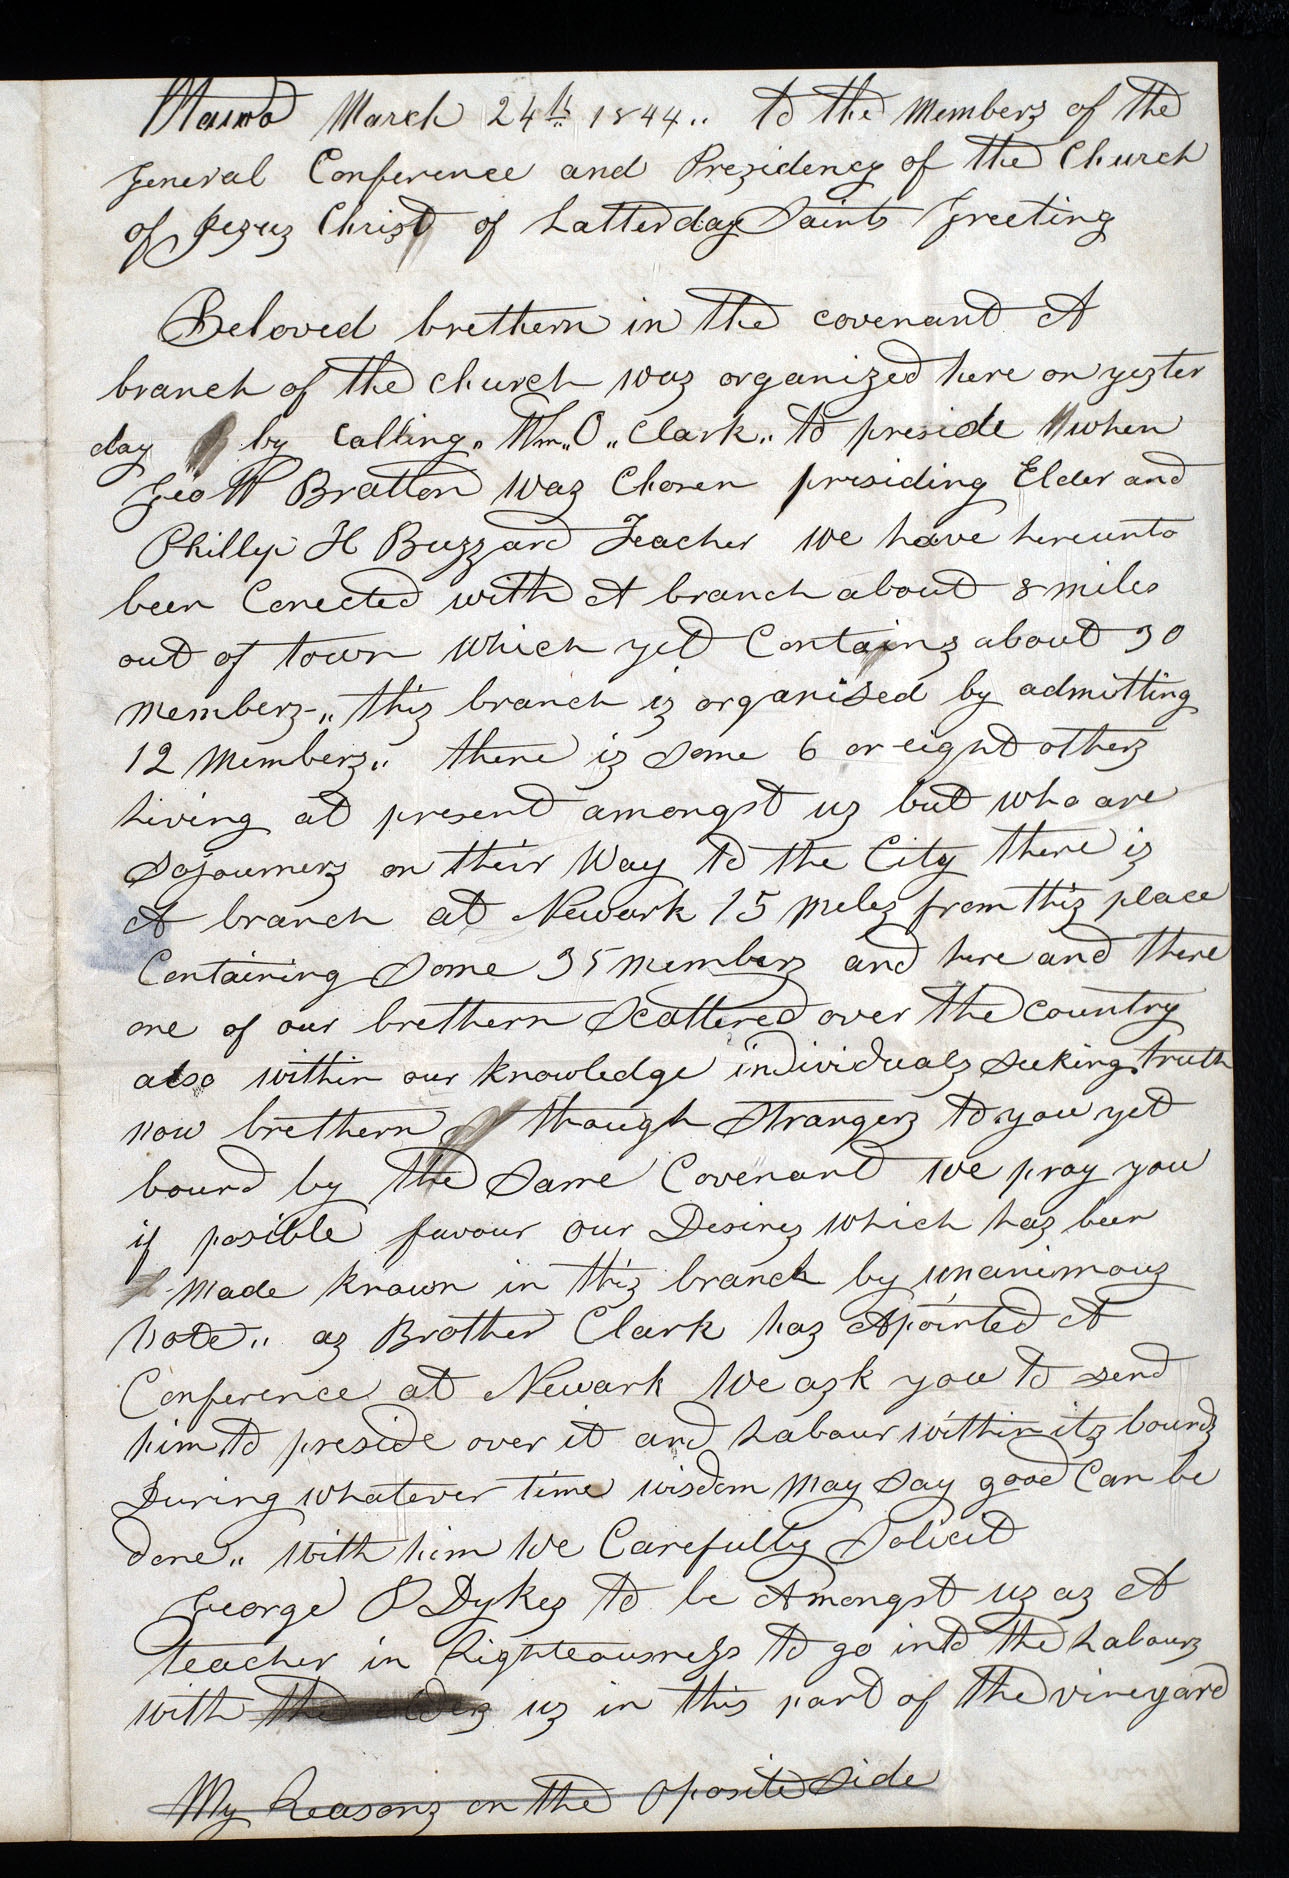 March 24th 1844.. to the Memberz of the
general Conference and Prezidency of the Church
of Jezuz Christ of Latterday Saints Greeting
Beloved brethern in the covenant A
branch of the church waz organized here on yezter
day by Calling,, Wm,, O,, Clark,, to preside when
Geo W Bratton waz Chosen presiding Elder and
Phillip H Buzzard Teacher we have hereunto
been Conected with A branch about 8 miles
out of town which yet Containz about 30
memberz-,, thiz branch iz organised by admitting
12 Memberz,, there iz some 6 or eight otherz
living at present amongst uz but who are
Sojournerz on their Way to the City there iz
A branch at Newark 15 milez from thiz place
Containing Some 35 memberz and here and there
one of our brethern Scattered over the country
also within our knowledge individualz seeking truth
now brethern though Strangerz to you yet
bound by the Same Covenant we pray you
if posible favour our Desirez which haz been
made known in thiz branch by unanimouz
vote,, az Brother Clark haz Apointed A
Conference at Newark We ask you to send
him to preside over it and Labour within itz boundz
During whatever time wisdom May Say good Can be
done,, with him We Carefully Solicit
George P Dykez to be Amongst uz az A
teacher in Righteousness to go into the Labourz
with the elderz uz in this part of the vineyard
My Reasonz on the Oposite Side